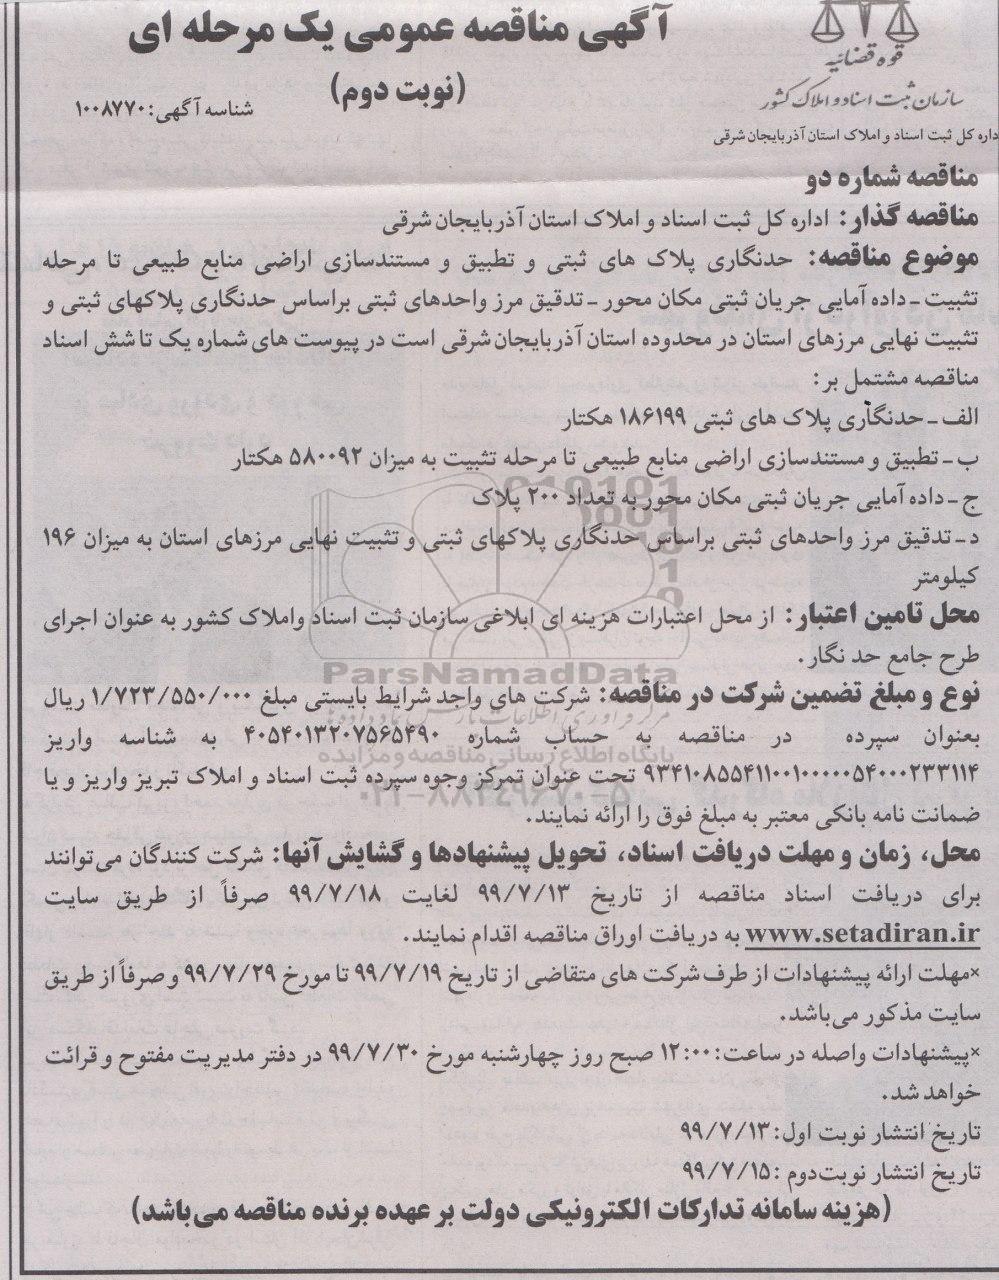 آگهی مناقصه عمومی یک مرحله ای
(نوبت دوم)
شناسه آگهی: ۱۰۰۸۷۷۰
قوه قضائیه
سازمان ثبت اسناد و املاک کشور
داره کل ثبت اسناد و املاک استان آذربایجان شرقی
مناقصه شماره دو
مناقصه گذار: اداره کل ثبت اسناد و املاک استان آذربایجان شرقی
موضوع مناقصه: حدنگاری پلاک های ثبتی و تطبیق و مستندسازی اراضی منابع طبیعی تا مرحله
تثبیت ـ داده آمایی جریان ثبتی مکان محور ـ تدقیق مرز واحدهای ثبتی براساس حدنگاری پلاکهای ثبتی و
تثبیت نهایی مرزهای استان در محدوده استان آذربایجان شرقی است در پیوست های شماره یک تا شش اسناد
مناقصه مشتمل بر:
الف ـ حدنگاری پلاک های ثبتی ۱۸۶۱۹۹ هکتار
ب ـ تطبیق و مستندسازی اراضی منابع طبیعی تا مرحله تثبیت به میزان ۵۸۰۰۹۲ هکتار
ج ـ داده آمایی جریان ثبتی مکان محور به تعداد ۲۰۰ پلاک
د ـ تدقیق مرز واحدهای ثبتی براساس حدنگاری پلاکهای ثبتی و تثبیت نهایی مرزهای استان به میزان ۱۹۶
کیلومتر
محل تامین اعتبار: از محل اعتبارات هزینه ای ابلاغی سازمان ثبت اسناد واملاک کشور به عنوان اجرای
طرح جامع حد نگار.
ParsNamadData
نوع و مبلغ تضمین شرکت در مناقصه: شرکت های واجد شرایط بایستی مبلغ ۱/۷۲۳/۵۵۰/۰۰۰ ریال
بعنوان سپرده در مناقصه به حساب شماره ۴۰۵۴۰۱۳۲۰۷۵۶۵۴۹۰ به شناسه واریز
پایگاه اطلاع رسانی مناقصه و مزایده
۹۳۴۱۰۸۵۵۴۱۱۰۰۱۰۰۰۰۰۵۴۰۰۰۲۳۳۱۱۴ تحت عنوان تمرکز وجوه سپرده ثبت اسناد و املاک تبریز واریز و یا
ضمانت نامه بانکی معتبر به مبلغ فوق را ارائه نمایند.
محل، زمان و مهلت دریافت اسناد، تحویل پیشنهادها و گشایش آنها: شرکت کنندگان می‌توانند
برای دریافت اسناد مناقصه از تاریخ ۹۹/۷/۱۳ لغایت ۹۹/۷/۱۸ صرفاً از طریق سایت
www.setadiran.ir به دریافت اوراق مناقصه اقدام نمایند.
×مهلت ارائه پیشنهادات از طرف شرکت های متقاضی از تاریخ ۹۹/۷/۱۹ تا مورخ ۹۹/۷/۲۹ و صرفاً از طریق
سایت مذکور می‌باشد.
×پیشنهادات واصله در ساعت: ۱۲:۰۰ صبح روز چهارشنبه مورخ ۹۹/۷/۳۰ در دفتر مدیریت مفتوح و قرائت
خواهد شد.
تاریخ انتشار نوبت اول: ۹۹/۷/۱۳
تاریخ انتشار نوبت‌دوم : ۹۹/۷/۱۵
(هزینه سامانه تدارکات الکترونیکی دولت بر عهده برنده مناقصه می‌باشد)